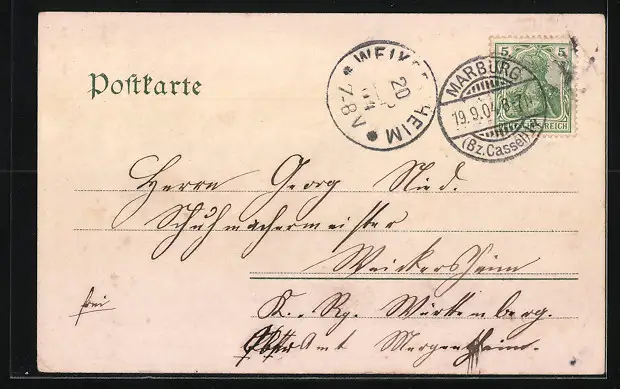 Postkarte
WEIKERSHEIM
20
04
7-8 V
MARBURG
19.9.04. 8-
(Bz.Cassel)
5 5
REICH
Herrn Georg Ried.
Schuhmachermeister
Weickersheim
frei
K. Rg. Württemberg.
OberAmt Mergentheim.